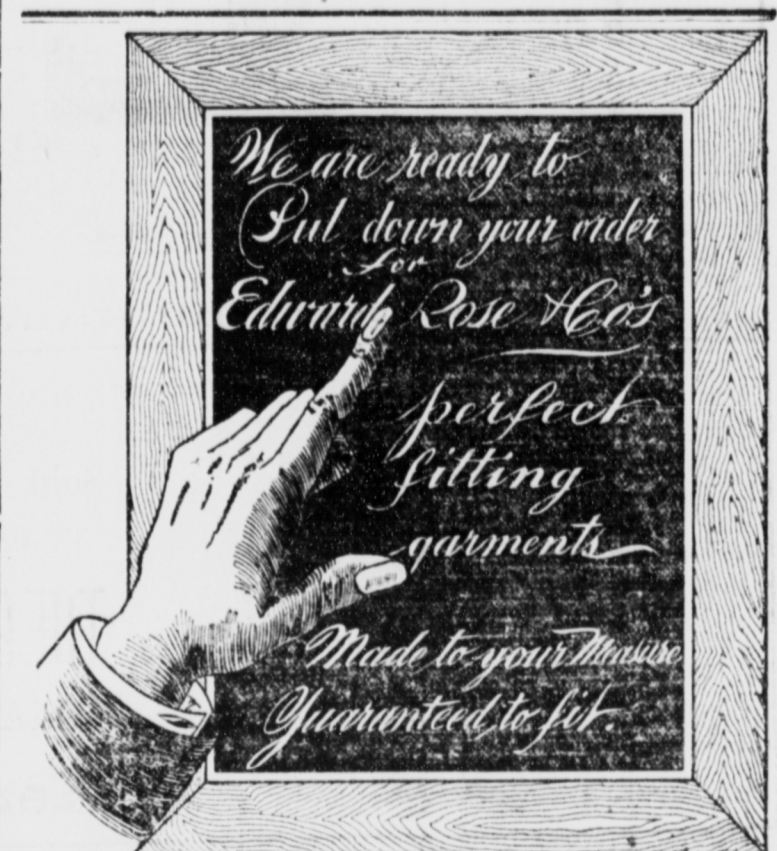 We are ready to
Put down your order
for
Edward Rose & Co's
perfect
fitting
garments
Made to your Measure
Guaranteed to fit.